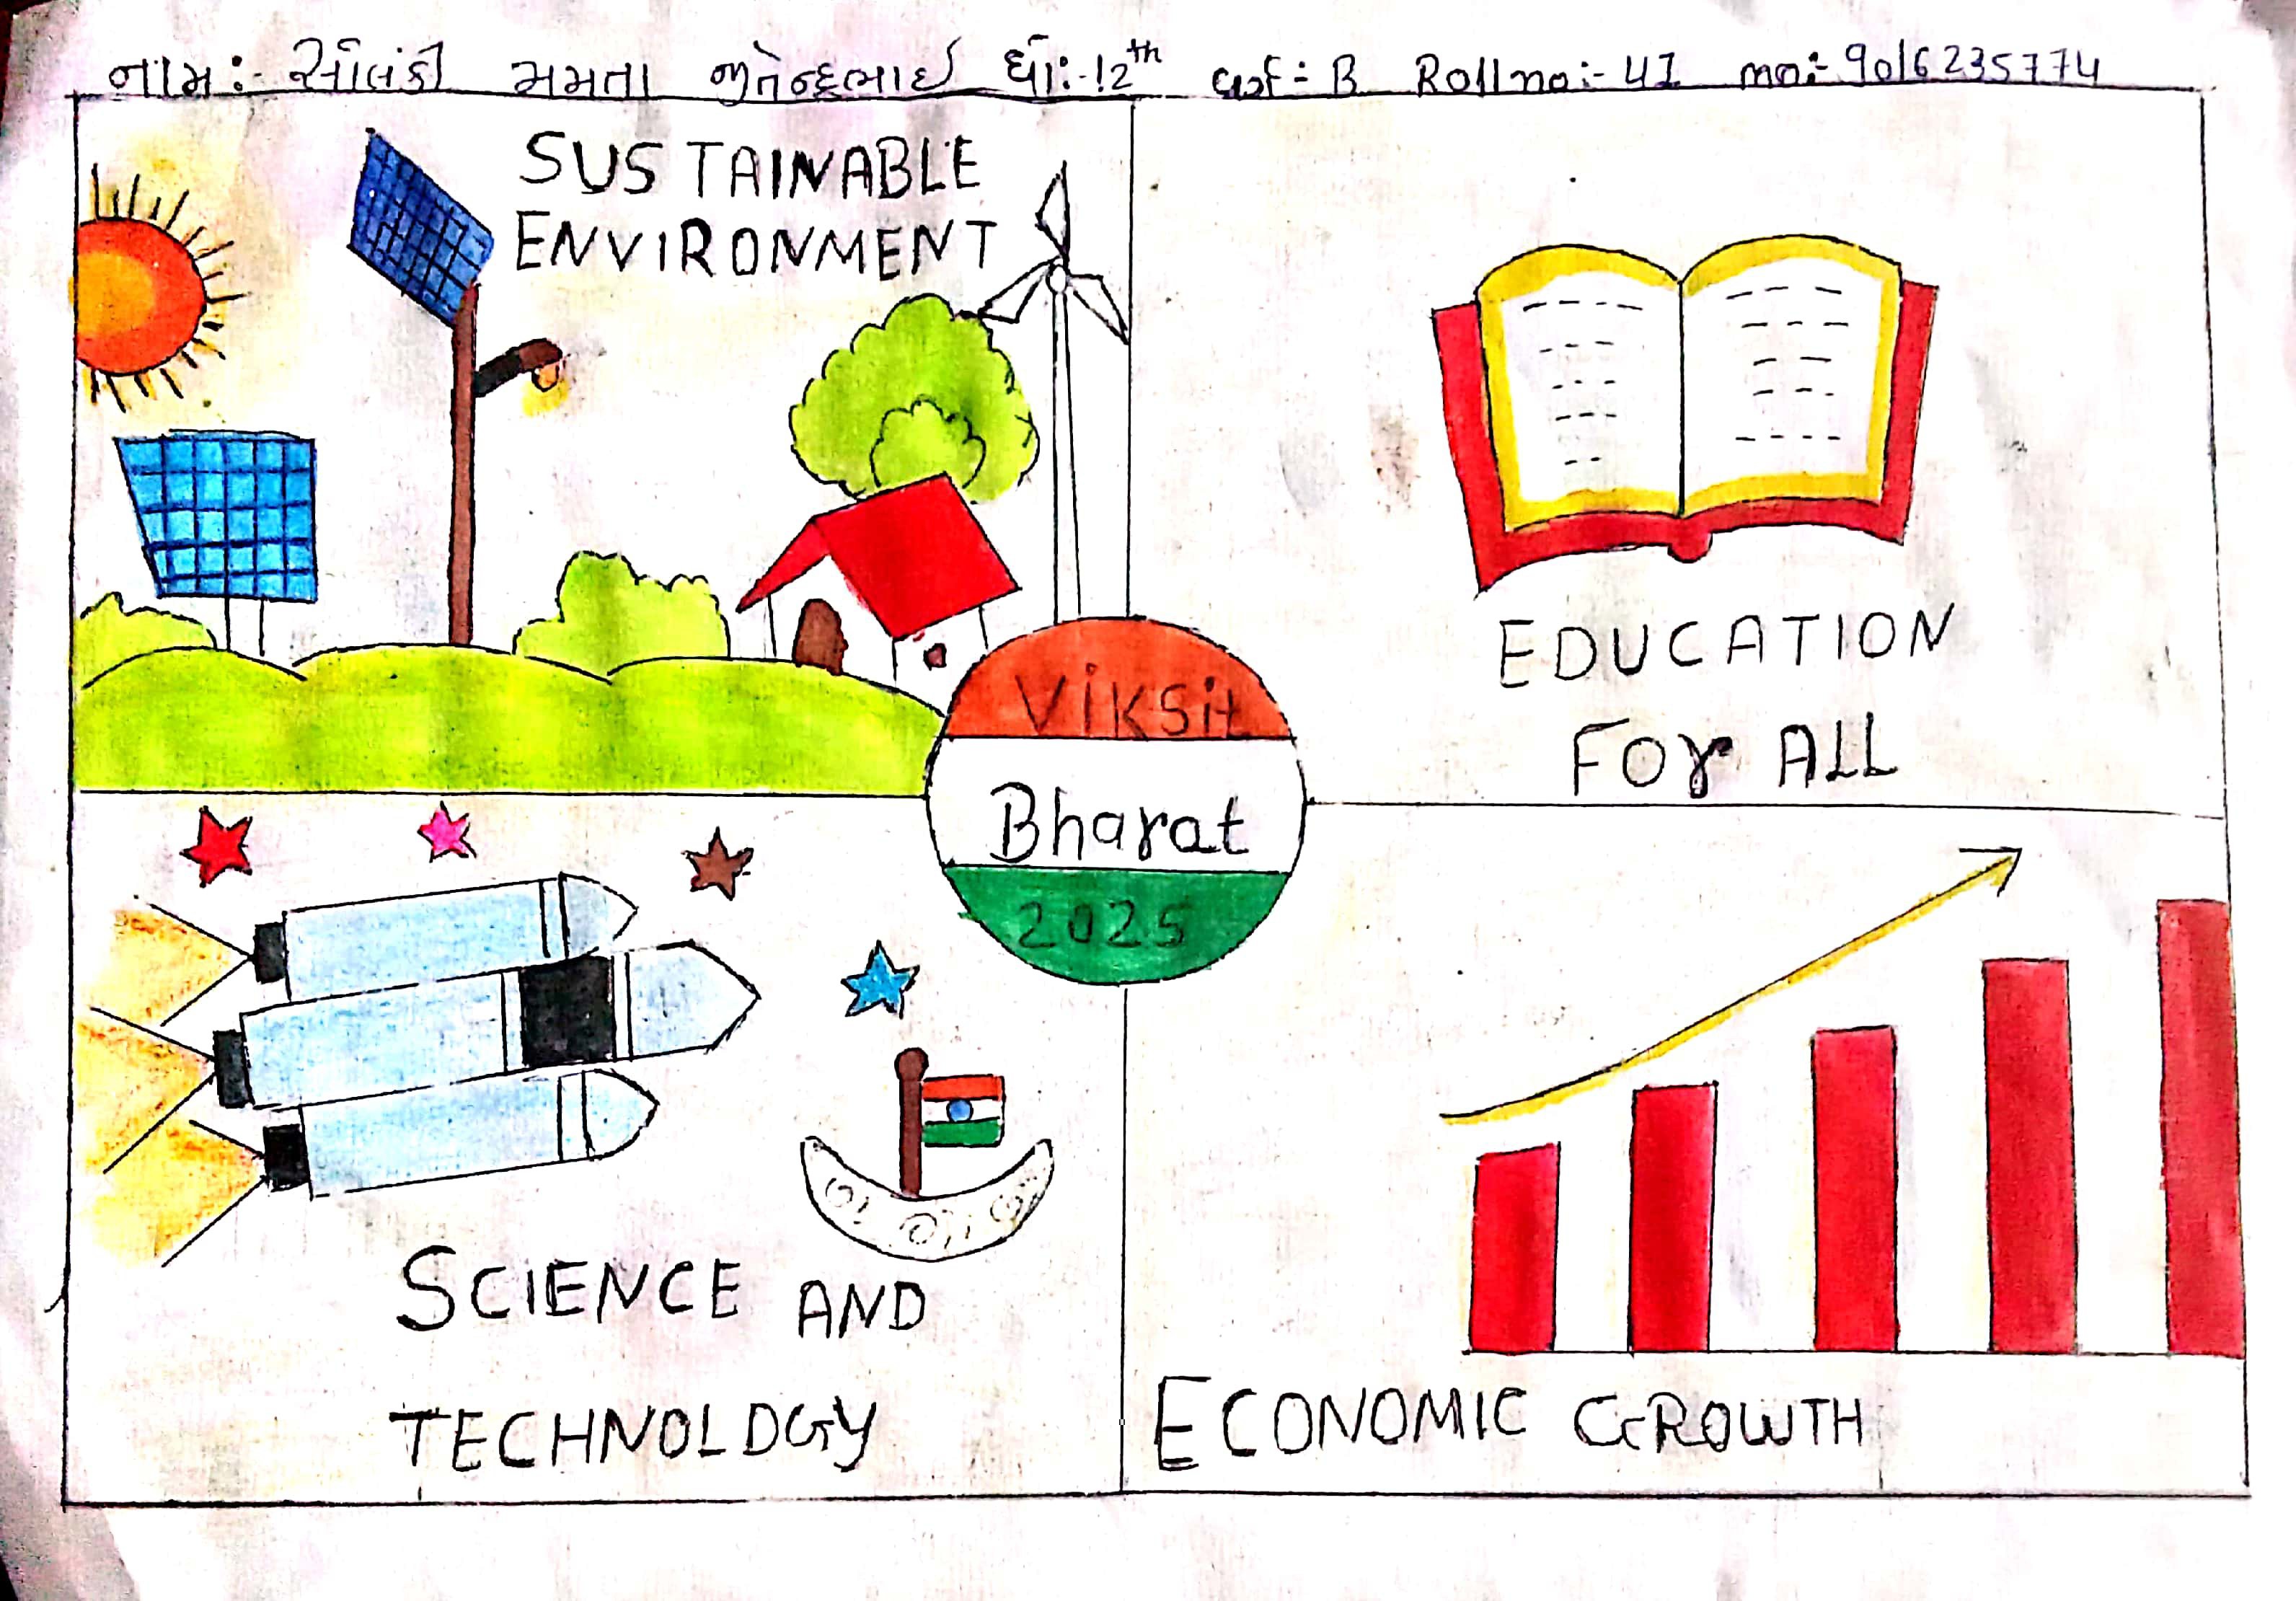 નામ:- સોલંકી મમતા જીતેન્દ્રભાઈ ધો:-12th વર્ગ = B Roll no:- 41 mo:- 9016235774
SUSTAINABLE
ENVIRONMENT
EDUCATION
FOr ALL
Viksit
Bharat
2025
SCIENCE AND
TECHNOLOGY
ECONOMIC GROWTH